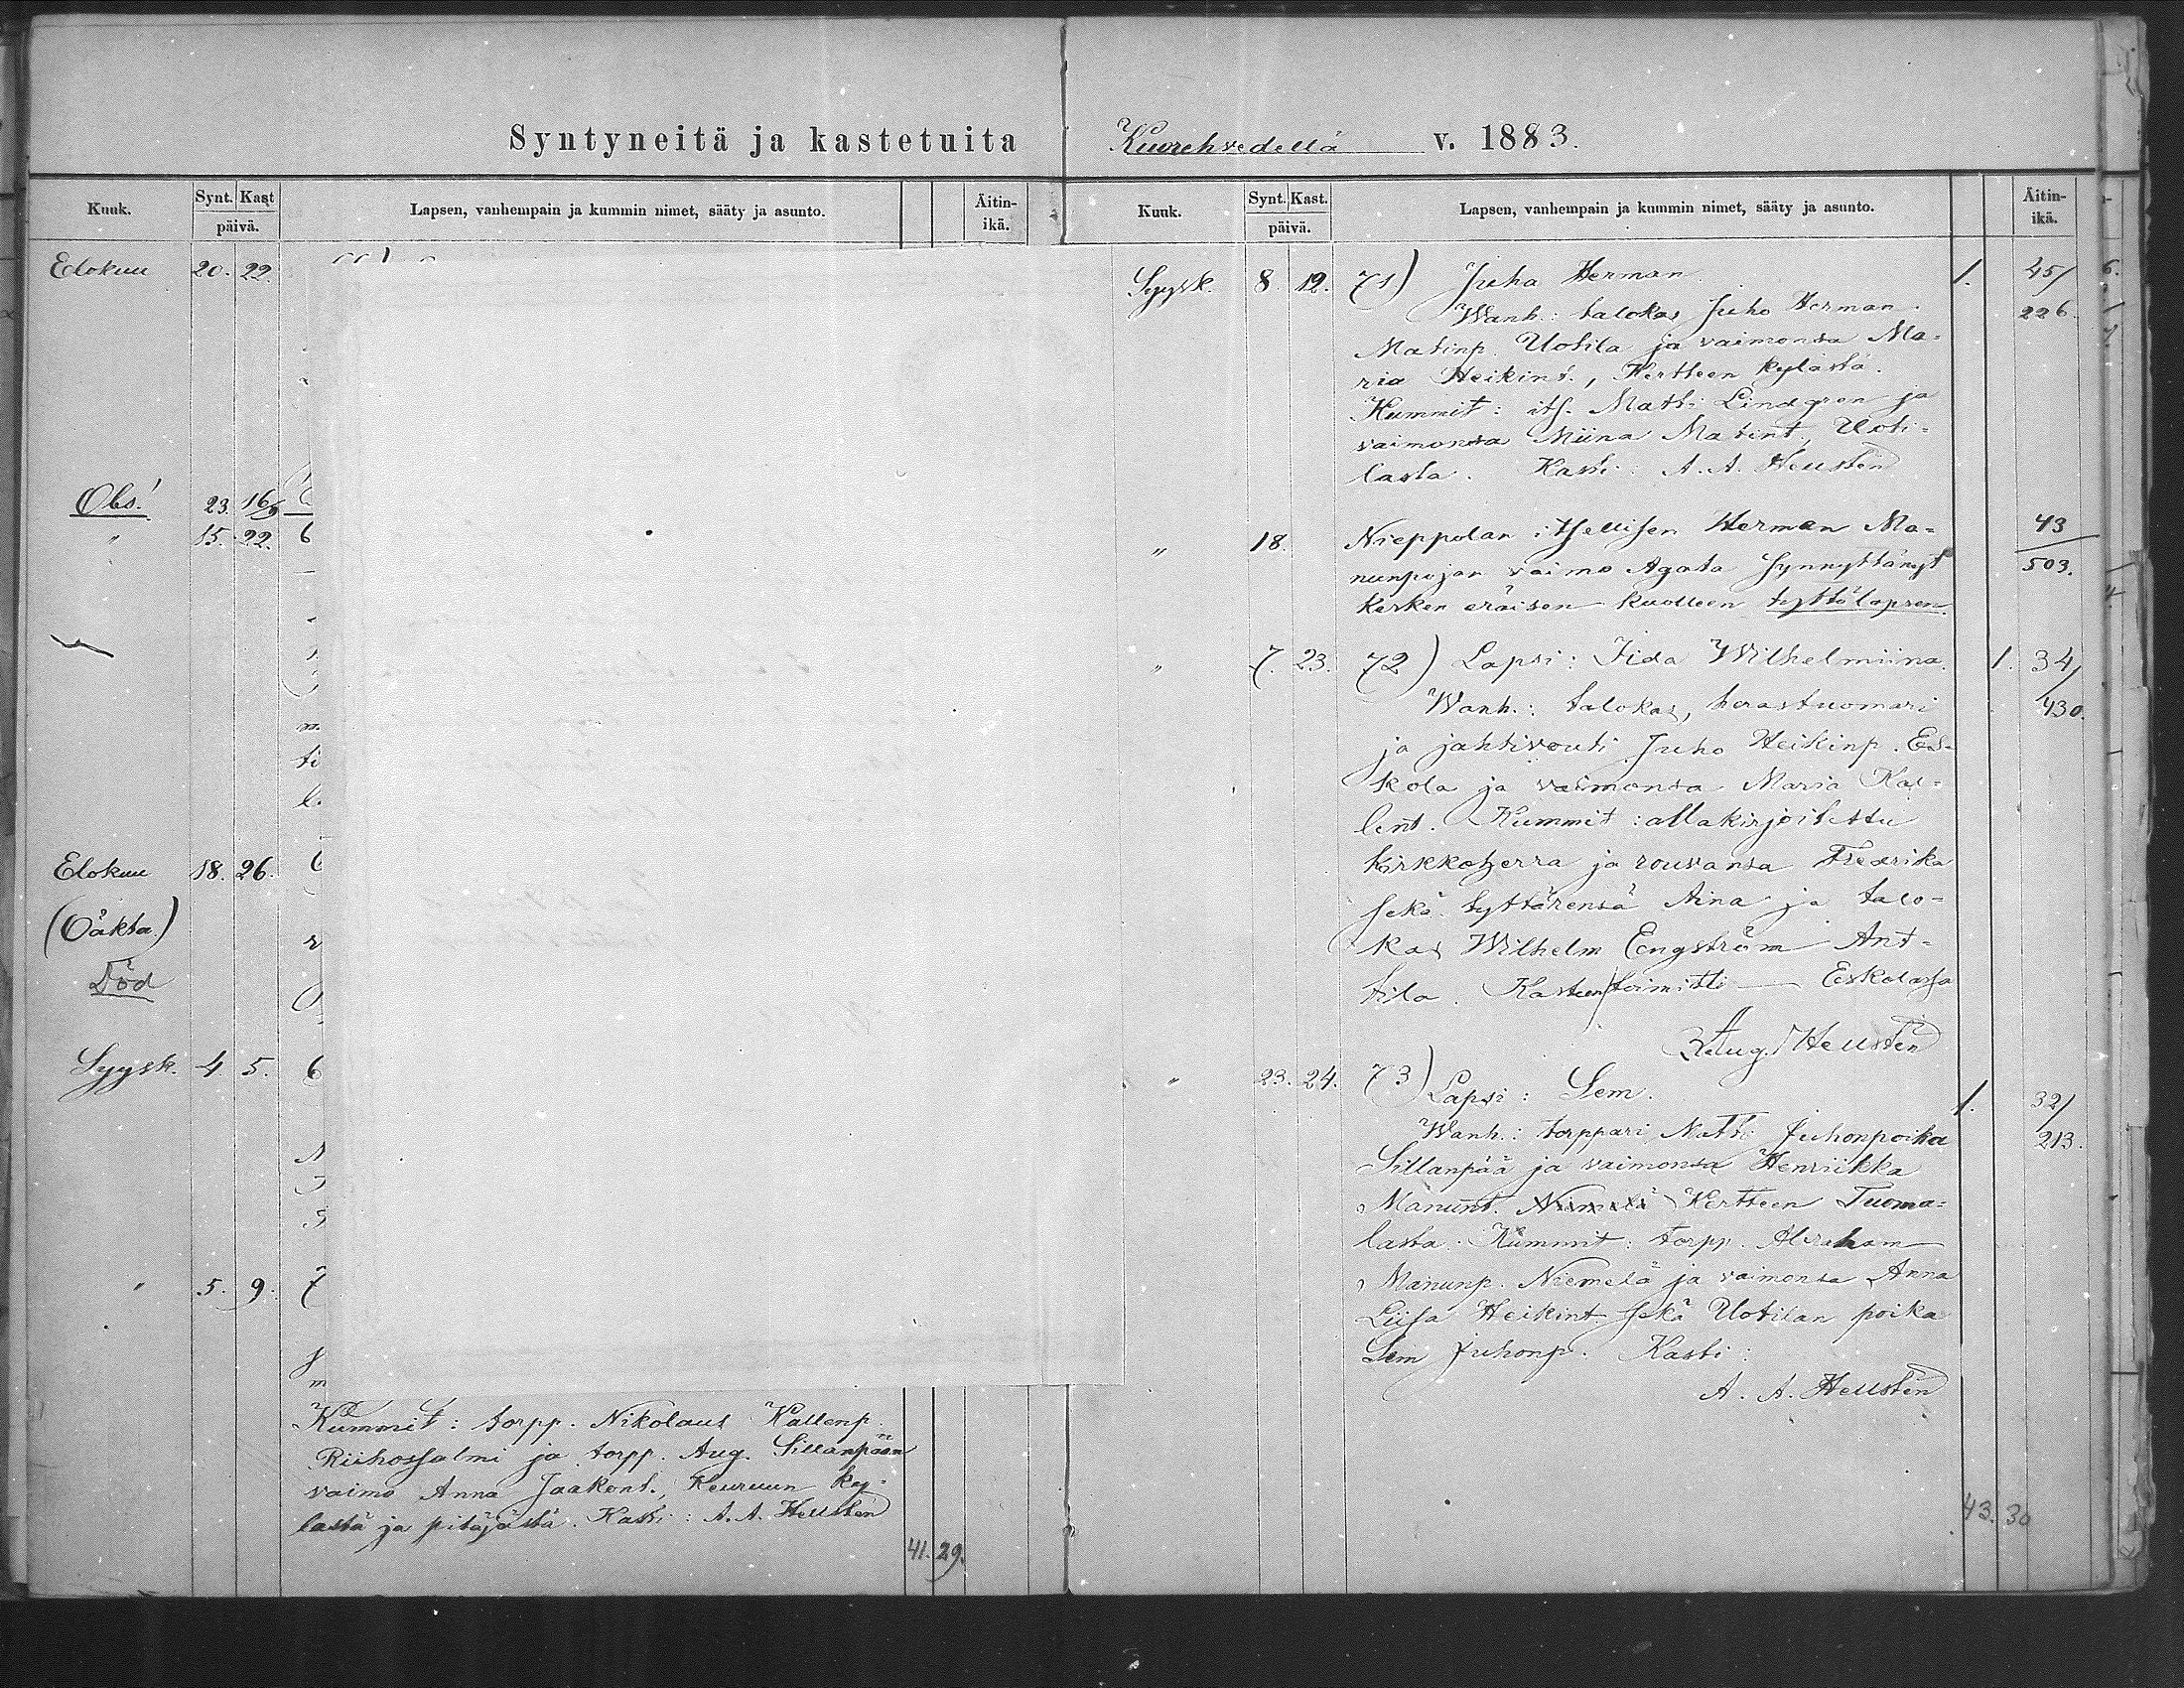 Syntyneitä ja kastetuita Kuorehvedellä v. 1883.
Kuuk. Synt. Kast päivä. Lapsen, vanhempain ja kummin nimet, sääty ja asunto. Äitin-ikä.
Elokuu 20. 22.
Obs! 23. 16/9
" 15. 22. 6
m.
ti
l.
Elokuu 18. 26.
(Oäkta.)
Död
Syysk. 4 5. 6
" 5. 9. 7
m
Kummit: torpp. Nikolaus Kallenp.
Riihossalmi ja torpp. Aug. Sillanpään
vaimo Anna Jaakont., Keuruun ky-
lästä ja pitäjästä. Kasti: A. A. Hellstén
41. 29.
Kuuk. Synt. Kast. päivä. Lapsen, vanhempain ja kummin nimet, sääty ja asunto. Äitin-ikä.
Syysk. 8. 12. 71) Juha Herman. 1. 45/
Wanh.: talokas Juho Herman 226.
Matinp. Uotila ja vaimonsa Ma-
ria Heikint., Kertteen kylästä.
Kummit: its. Matti Lindgren ja
vaimonsa Miina Matint., Uoti-
lasta. Kasti: A. A. Hellstén
" 18. Nieppolan itsellisen Herman Ma- 43
nunpojan vaimo Agata synnyttänyt 503.
kesken eräisen kuolleen tyttölapsen.
" 7. 23. 72) Lapsi: Iida Wilhelmiina. 1. 34/
Wanh.: talokas, herastuomari 430.
ja jahtivouti Juho Heikinp. Es-
kola ja vaimonsa Maria Kal-
lent. Kummit: allakirjoitettu
kirkkoherra ja rouvansa Fredrika
sekä tyttärensä Aina ja talo-
kas Wilhelm Engström Ant-
tila. Kasteen toimitti — Eskolassa
Aug. Hellstén
" 23. 24. 73) Lapsi: Sem. 1. 32/
Wanh.: torppari Matti Juhonpoika 213.
Sillanpää ja vaimonsa Henriikka
Manunt. Niemelä Kertteen Tuoma-
lasta. Kummit: torpp. Abraham
Manunp. Niemelä ja vaimonsa Anna
Liisa Heikint. sekä Uotilan poika
Sem Juhonp. Kasti:
A. A. Hellstén
43. 30